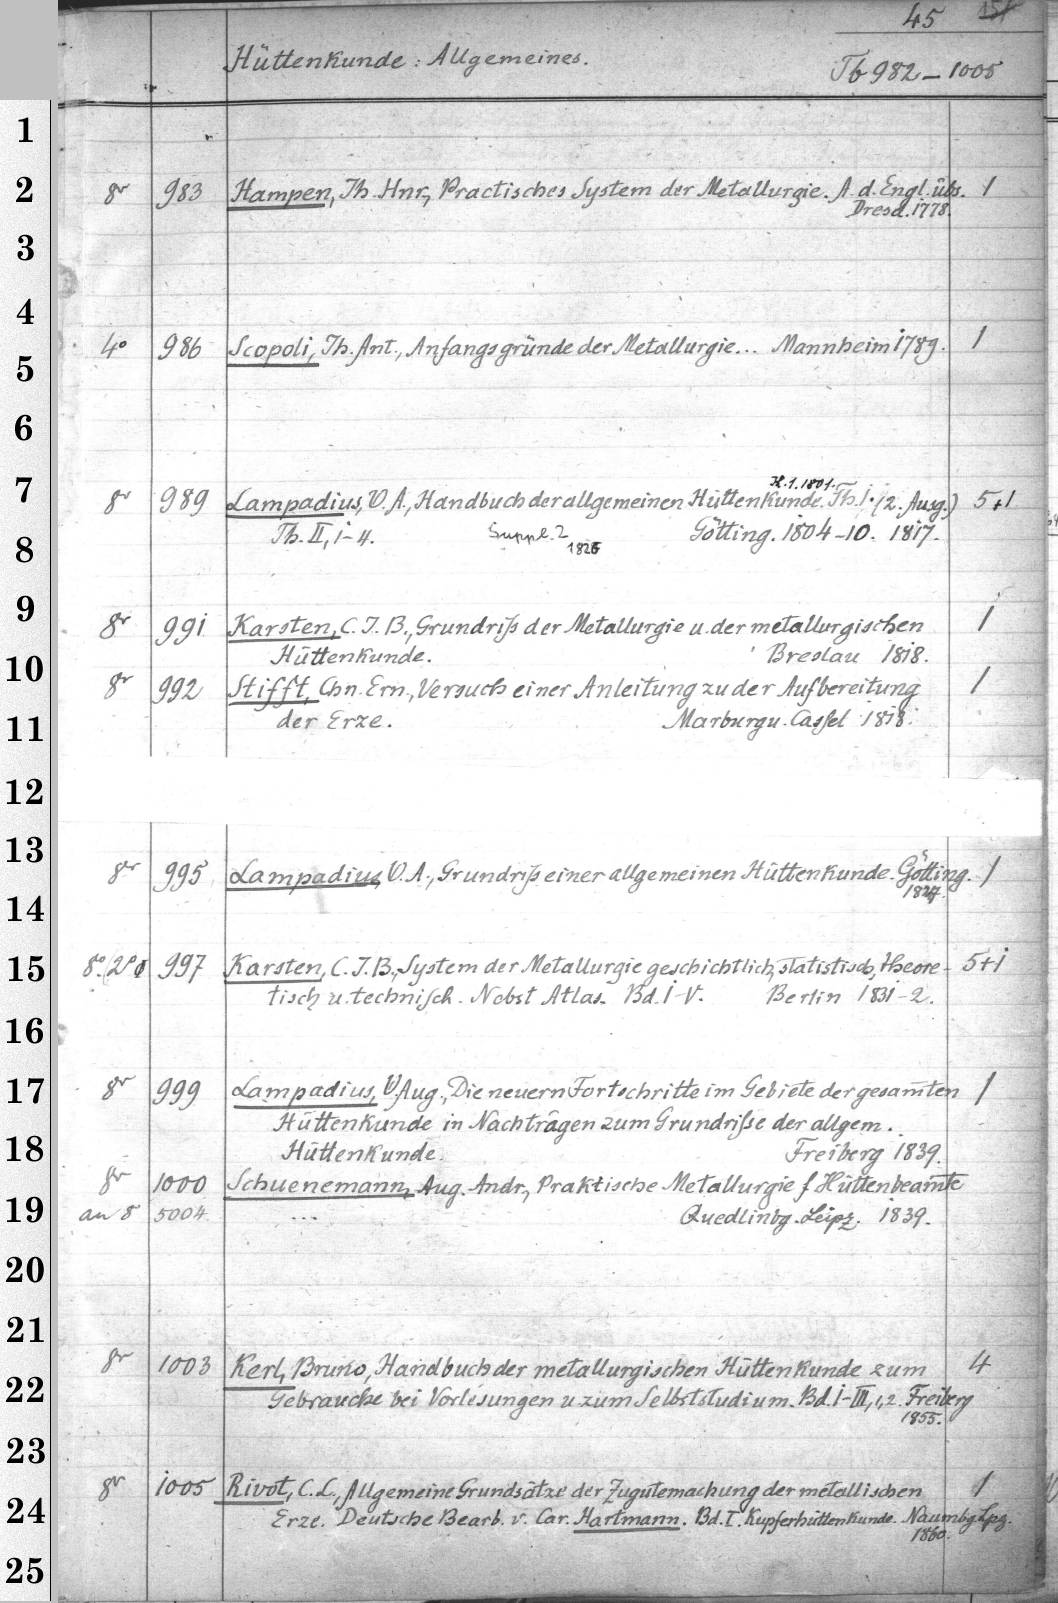 45
Hüttenkunde: Allgemeines. Tb 982–1005
1
2 8r 983 Hampen, Th. Hnr, Practisches System der Metallurgie. A. d. Engl. übs. 1
Dresd. 1778.
3
4
4° 986 Scopoli, Th. Ant., Anfangsgründe der Metallurgie... Mannheim 1789. 1
5
6
H. 1. 1801.
7 8r 989 Lampadius, W. A., Handbuch der allgemeinen Hüttenkunde. Th. I. (2. Ausg.) 5+1
Th. II, 1–4. Suppl. 2 Götting. 1804–10. 1817.
8 1826
9 8r 991 Karsten, C. J. B., Grundriß der Metallurgie u. der metallurgischen 1
10 Hüttenkunde. Breslau 1818.
8r 992 Stifft, Chn. Ern., Versuch einer Anleitung zu der Aufbereitung 1
11 der Erze. Marburg u. Cassel 1818.
12
13
8r 995 Lampadius, W. A., Grundriß einer allgemeinen Hüttenkunde. Götting. 1
1827.
14
15 8° (2° 997 Karsten, C. J. B., System der Metallurgie geschichtlich, statistisch, theore- 5+1
tisch u. technisch. Nebst Atlas. Bd. I–V. Berlin 1831–2.
16
17 8r 999 Lampadius, W. Aug., Die neuern Fortschritte im Gebiete der gesam̄ten 1
Hüttenkunde in Nachträgen zum Grundrisse der allgem.
18 Hüttenkunde. Freiberg 1839.
8r 1000 Schuenemann, Aug. Andr., Praktische Metallurgie f. Hüttenbeam̄te
19 an 8 5004 ... Quedlinbg. Leipz. 1839.
20
21
8r 1003 Kerl, Bruno, Handbuch der metallurgischen Hüttenkunde zum 4
22 Gebrauche bei Vorlesungen u zum Selbststudium. Bd. I–III, 1, 2. Freiberg
1855.
23
8r 1005 Rivot, C. L., Allgemeine Grundsätze der Zugutemachung der metallischen 1
24 Erze. Deutsche Bearb. v. Car. Hartmann. Bd. I. Kupferhüttenkunde. Naumbg. Lpz.
1860.
25